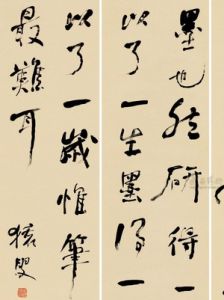 墨也然研得一
以了一生墨得一
以了一歲惟筆
最難耳
猨叟